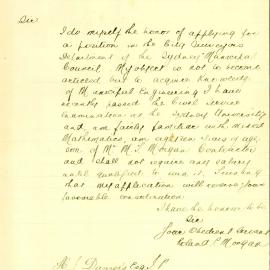 Sir
I do myself the honor of applying for
a position in the City Surveyors
Department of the Sydney Municipal
Council. My object is not to become
articled but to acquire knowledge
of Municipal Engineering I have
recently passed the Civil Service
Examination at the Sydney University
and am fairly familiar with mixed
Mathematics am sixteen years of age,
son of Mr M. F. Morgan Contractor
and shall not require any salary
until qualified to earn it. Trusting
that my application will receive your
favourable consideration.
I have the honor to be
Sir
Your Obedient Servant
Morgan
Daniels Esq J.P.